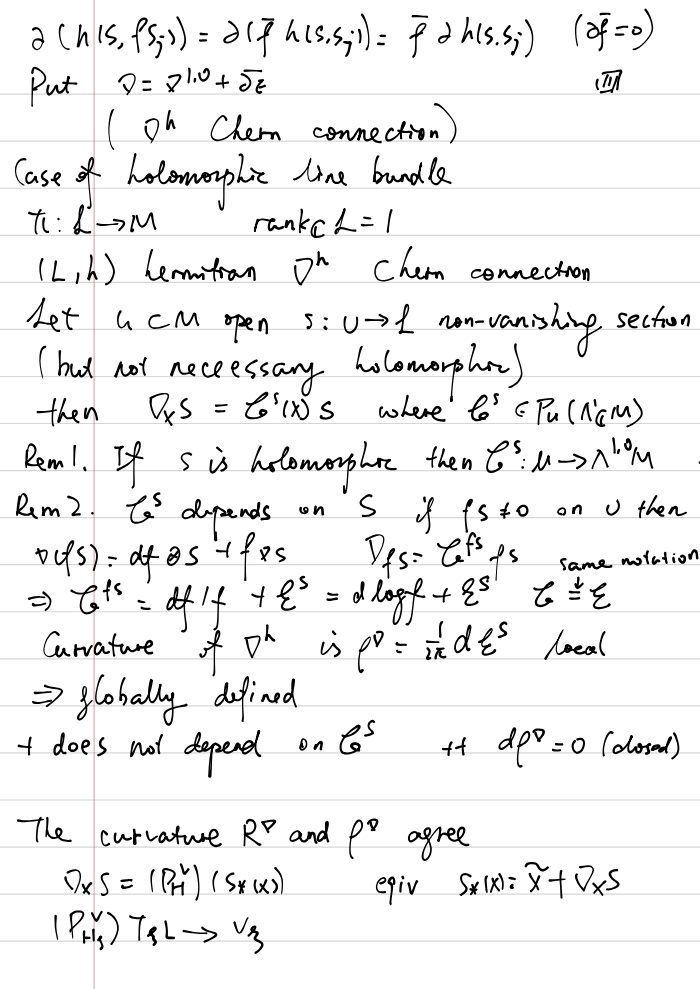 ∂(h(s, fs_j)) = ∂(f̄ h(s,s_j)) = f̄ ∂h(s.s_j) (∂f̄=0)
Put ∇ = ∇^{1,0} + ∂̄_E
(∇^h Chern connection)
Case of holomorphic line bundle
π: L → M rank_ℂ L = 1
(L,h) hermitian ∇^h Chern connection
Let U ⊂ M open s: U → L non-vanishing section
(but not necessary holomorphic)
then ∇_X s = τ^s(x) s where τ^s ∈ Γ_U(Λ^1_ℂ M)
Rem 1. If s is holomorphic then τ^s: M → Λ^{1,0}M
Rem 2. τ^s depends on S if fs ≠ 0 on U then
∇(fs) = df ⊗ s + f ∇s ∇_{fs} = τ^{fs} fs same notation
⇒ τ^{fs} = df/f + ξ^s = d log f + ξ^s τ = ξ
Curvature of ∇^h is ρ^∇ = 1/2π dξ^s local
⇒ globally defined
+ does not depend on τ^s ++ dρ^∇ = 0 (closed)
The curvature R^∇ and ρ^∇ agree
∇_X S = (P_H^V)(S_*(x)) eqiv S_*(x) = X̃ + ∇_X S
(P_{H_ξ}^V) T_ξ L → V_ξ